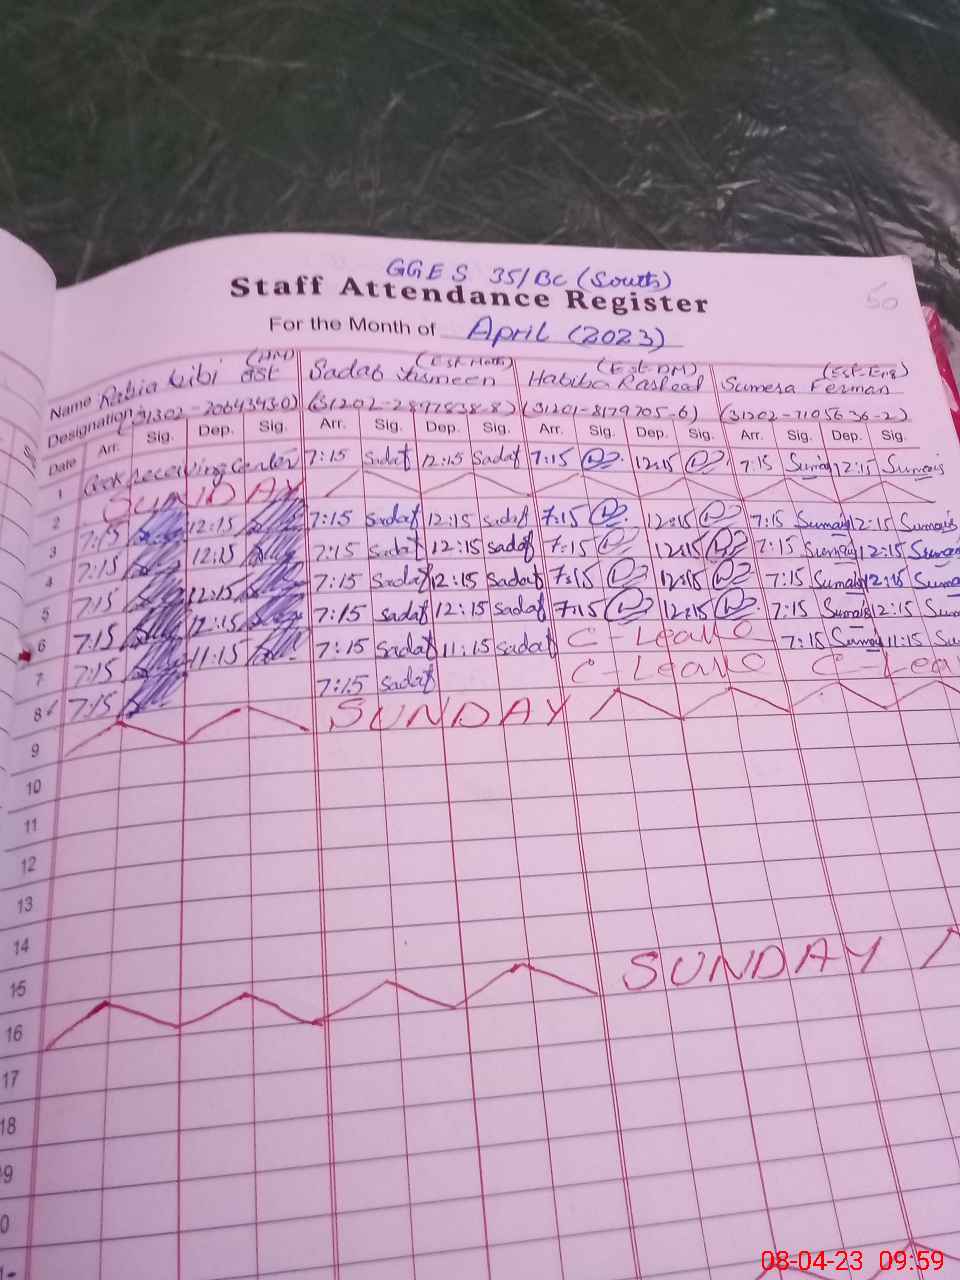 GGES 35/BC (South)
Staff Attendance Register 50
For the Month of April (2023)
(HM) (Est-Math) (Est-DM) (Est-Eng)
Name Rabia Bibi Sadaf Habiba Rasool Sumera Ferman
Designation (31202-2897838-8) (31201-8179705-6) (31202-7105636-2)
Date Arr. Sig. Dep. Sig. Arr. Sig. Dep. Sig. Arr. Sig. Dep. Sig. Arr. Sig. Dep. Sig.
1 receiving Center 7:15 Sadaf 12:15 Sadaf 7:15 12:15 7:15 12:15
2 SUNDAY
3 7:15 12:15 7:15 Sadaf 12:15 Sadaf 7:15 12:15 7:15 12:15
4 7:15 12:15 7:15 Sadaf 12:15 Sadaf 7:15 12:15 7:15 12:15
5 7:15 12:15 7:15 Sadaf 12:15 Sadaf 7:15 12:15 7:15 12:15
6 7:15 12:15 7:15 Sadaf 12:15 Sadaf 7:15 12:15 7:15 12:15
7 7:15 11:15 7:15 Sadaf 11:15 Sadaf C-Leave 7:15 11:15
8 7:15 7:15 Sadaf C-Leave C-Lea
9 SUNDAY
10
11
12
13
14
15
16 SUNDAY
17
18
9
0
08-04-23 09:59